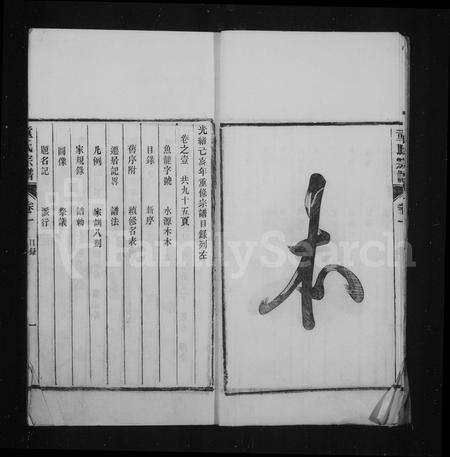 木
光緒己亥年重修宗譜目錄列左
卷之壹 共九十五頁
魚龍字號 水源木本
目錄 新序
舊序附 續修名表
遷居記畧 譜法
凡例 家訓八則
家規錄 譜論
圖像 祭議
題名記 派行
宗譜 卷一 目錄 一
FamilySearch